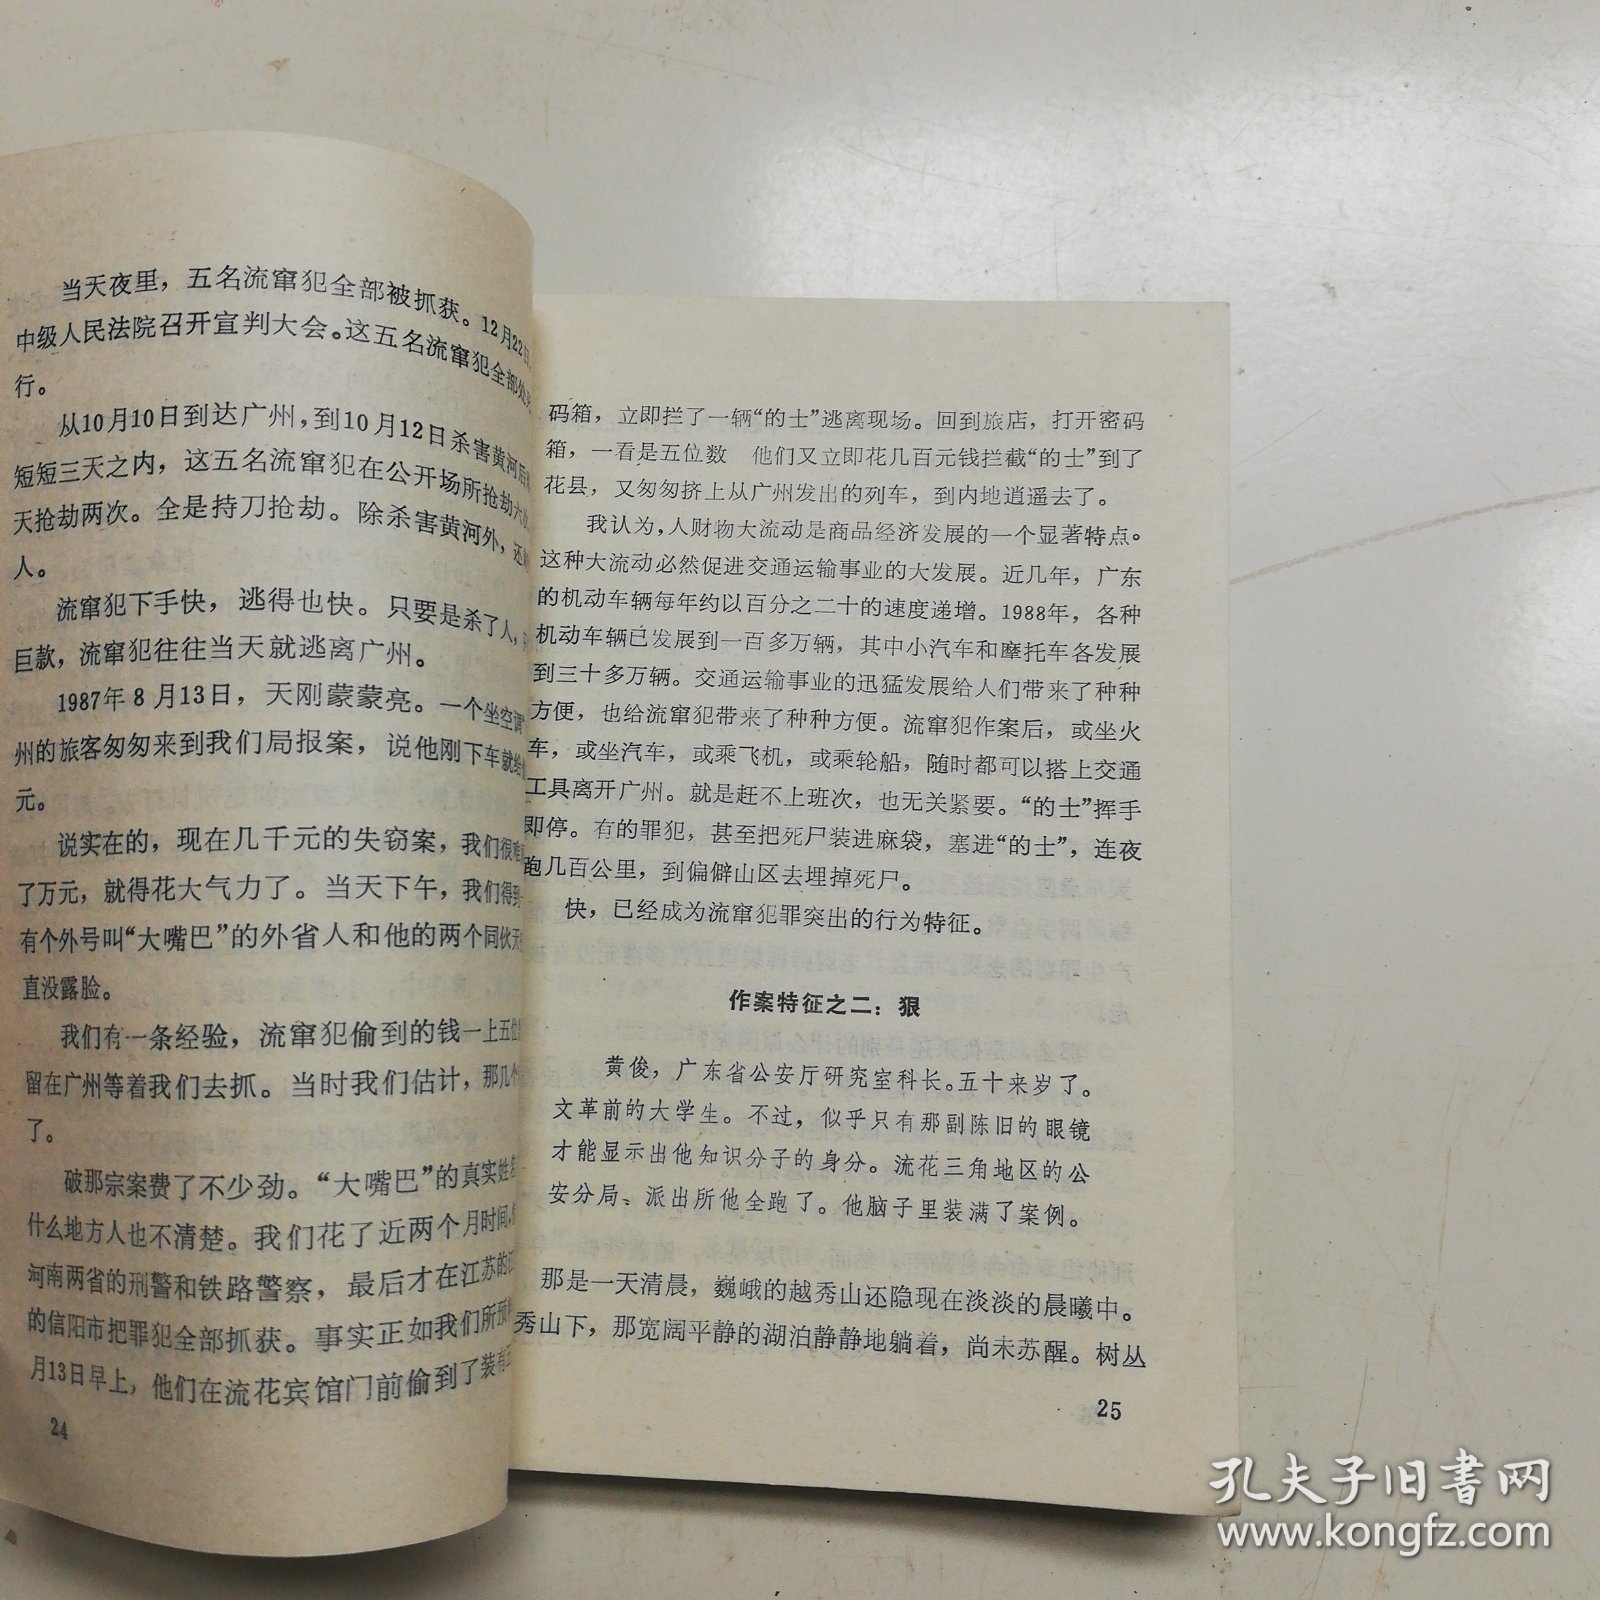 当天夜里，五名流窜犯全部被抓获。12月22日
中级人民法院召开宣判大会。这五名流窜犯全部处
行。
从10月10日到达广州，到10月12日杀害黄河后
短短三天之内，这五名流窜犯在公开场所抢劫六
天抢劫两次。全是持刀抢劫。除杀害黄河外，还
人。
流窜犯下手快，逃得也快。只要是杀了人，
巨款，流窜犯往往当天就逃离广州。
1987年8月13日，天刚蒙蒙亮。一个坐空调
州的旅客匆匆来到我们局报案，说他刚下车就给
元。
说实在的，现在几千元的失窃案，我们很难
了万元，就得花大气力了。当天下午，我们得到
有个外号叫“大嘴巴”的外省人和他的两个同伙天
直没露脸。
我们有一条经验，流窜犯偷到的钱一上五位
留在广州等着我们去抓。当时我们估计，那几个
了。
破那宗案费了不少劲。“大嘴巴”的真实姓
什么地方人也不清楚。我们花了近两个月时间，
河南两省的刑警和铁路警察，最后才在江苏的
的信阳市把罪犯全部抓获。事实正如我们所预
月13日早上，他们在流花宾馆门前偷到了装有
24
码箱，立即拦了一辆“的士”逃离现场。回到旅店，打开密码
箱，一看是五位数　他们又立即花几百元钱拦截“的士”到了
花县，又匆匆挤上从广州发出的列车，到内地逍遥去了。
我认为，人财物大流动是商品经济发展的一个显著特点。
这种大流动必然促进交通运输事业的大发展。近几年，广东
的机动车辆每年约以百分之二十的速度递增。1988年，各种
机动车辆已发展到一百多万辆，其中小汽车和摩托车各发展
到三十多万辆。交通运输事业的迅猛发展给人们带来了种种
方便，也给流窜犯带来了种种方便。流窜犯作案后，或坐火
车，或坐汽车，或乘飞机，或乘轮船，随时都可以搭上交通
工具离开广州。就是赶不上班次，也无关紧要。“的士”挥手
即停。有的罪犯，甚至把死尸装进麻袋，塞进“的士”，连夜
跑几百公里，到偏僻山区去埋掉死尸。
快，已经成为流窜犯罪突出的行为特征。
作案特征之二：狠
黄俊，广东省公安厅研究室科长。五十来岁了。
文革前的大学生。不过，似乎只有那副陈旧的眼镜
才能显示出他知识分子的身分。流花三角地区的公
安分局、派出所他全跑了。他脑子里装满了案例。
那是一天清晨，巍峨的越秀山还隐现在淡淡的晨曦中。
秀山下，那宽阔平静的湖泊静静地躺着，尚未苏醒。树丛
25
孔夫子旧书网
www.kongfz.com